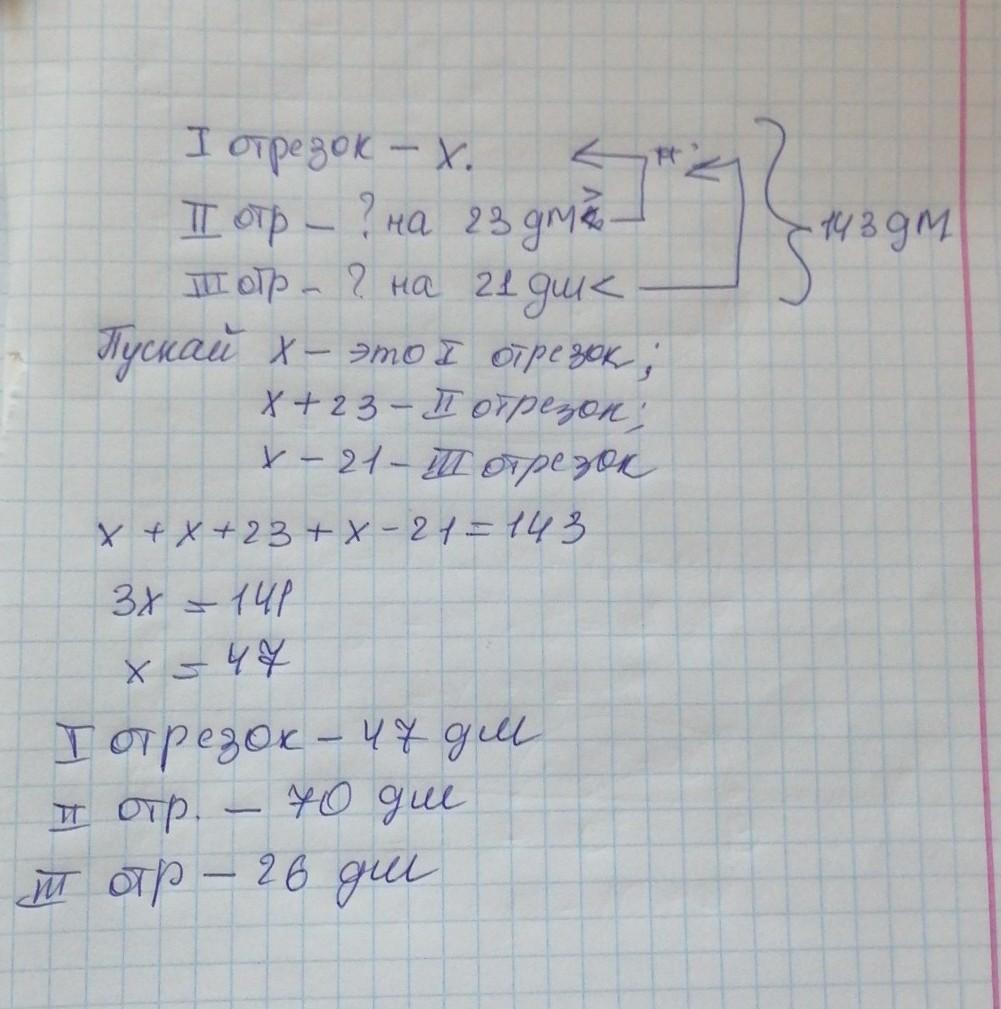 I отрезок - x.
II отр - ? на 23 дм >
III отр - ? на 21 дм <
143 дм
Пускай x - это I отрезок;
x + 23 - II отрезок;
x - 21 - III отрезок
x + x + 23 + x - 21 = 143
3x = 141
x = 47
I отрезок - 47 дм
II отр. - 70 дм
III отр - 26 дм